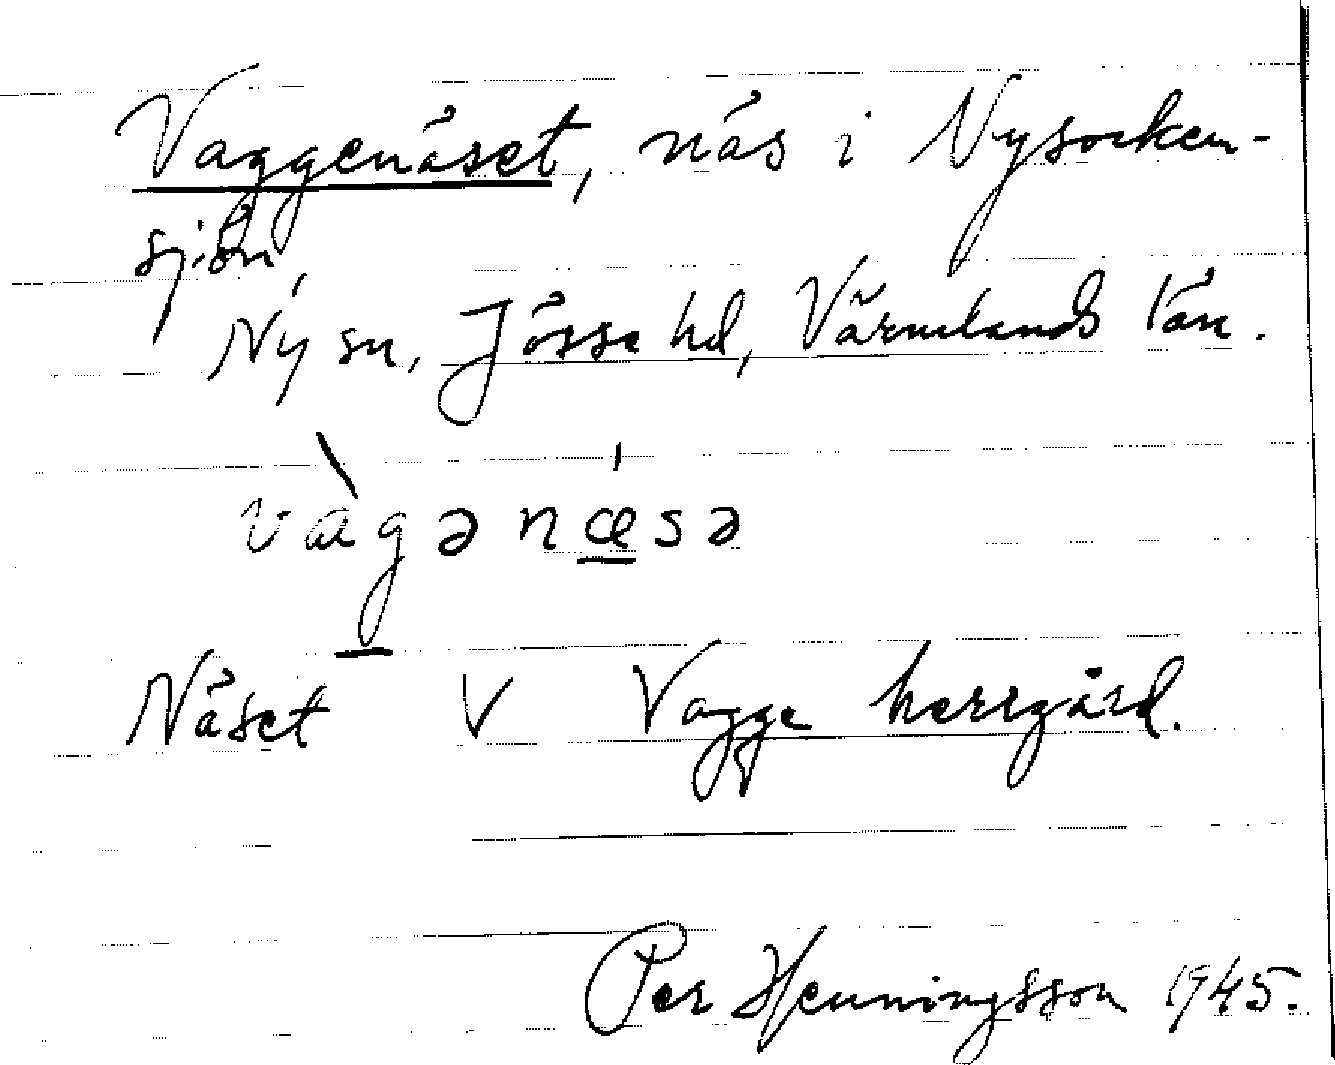 Vaggenäset, näs i Nysocken-
sjön,
Ny sn, Jösse hd, Värmlands län.
vàgənæsə
Näset V Vagge herrgård.
Per Henningsson 1945.